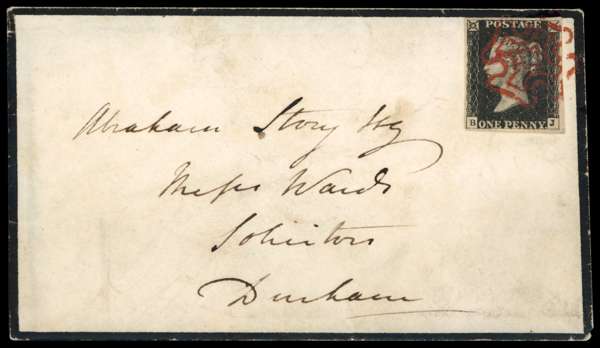 POSTAGE
B ONE PENNY J
Abraham Story Esq
Messrs Wards
Solicitors
Durham